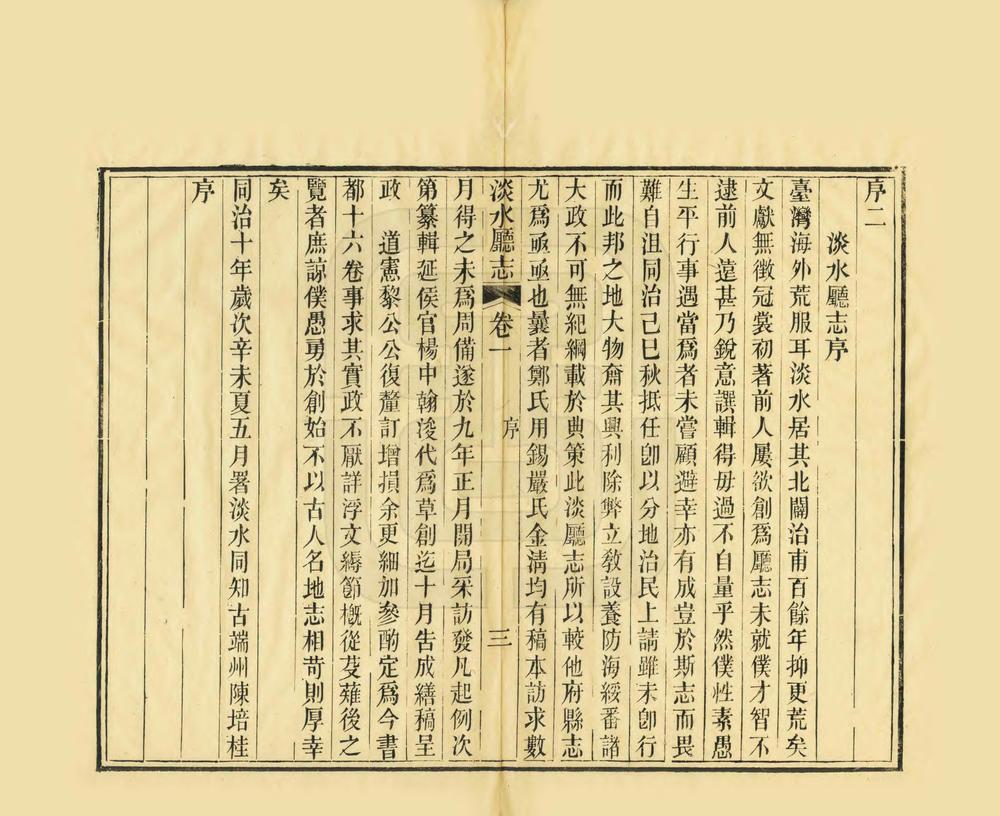 序二
淡水廳志序
臺灣海外荒服耳淡水居其北闢治甫百餘年抑更荒矣
文獻無徵冠裳初著前人屢欲創爲廳志未就僕才智不
逮前人遠甚乃銳意譔輯得毋過不自量乎然僕性素愚
生平行事遇當爲者未嘗顧避幸亦有成豈於斯志而畏
難自沮同治己巳秋抵任卽以分地治民上請雖未卽行
而此邦之地大物齊其興利除弊立敎設養防海綏番諸
大政不可無紀綱載於典策此淡廳志所以較他府縣志
尤爲亟亟也曩者鄭氏用錫嚴氏金淸均有稿本訪求數
淡水廳志 卷一 序 三
月得之未爲周備遂於九年正月開局采訪發凡起例次
第纂輯延侯官楊中翰浚代爲草創迄十月告成繕稿呈
政 道憲黎公公復釐訂增損余更細加參酌定爲今書
都十六卷事求其實政不厭詳浮文縟節槪從芟薙後之
覽者庶諒僕愚勇於創始不以古人名地志相苛則厚幸
矣
同治十年歲次辛未夏五月署淡水同知古端州陳培桂
序